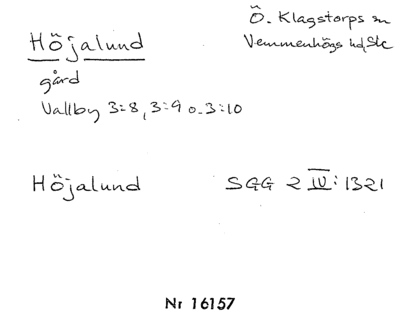 Höjalund
Ö. Klagstorps sn
Vemmenhögs hd, Sk
gård
Vallby 3:8, 3:9 o. 3:10
Höjalund SGG 2 IV: 1321
Nr 16157